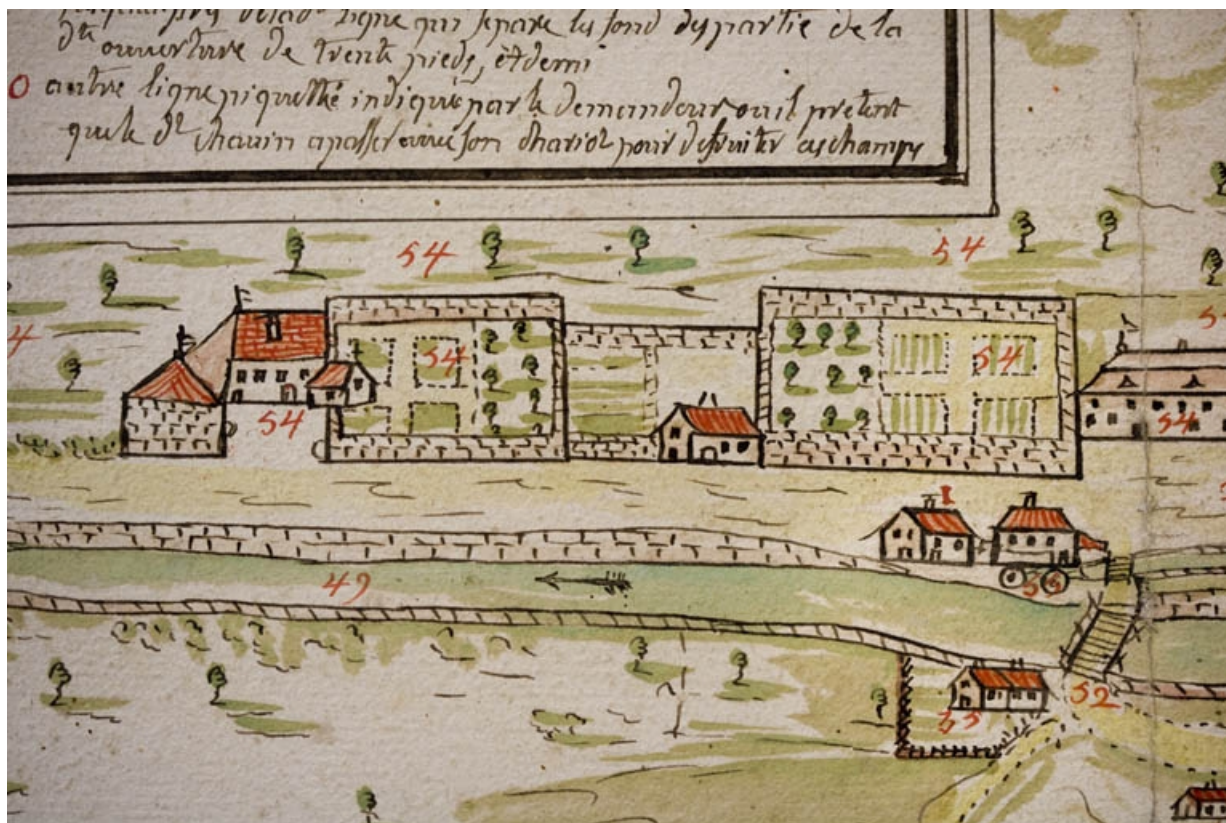 ligne qui separe les fond des partie de la
dte ouverture de trente pieds, et demi
O autre ligne piquettée indiquée par le demandeur ou il pretent
que le Sr chauin a passer avec son chariot pour defruiter ces champs
54 54
4 54 54 5
54 54
1
49 56
52
55